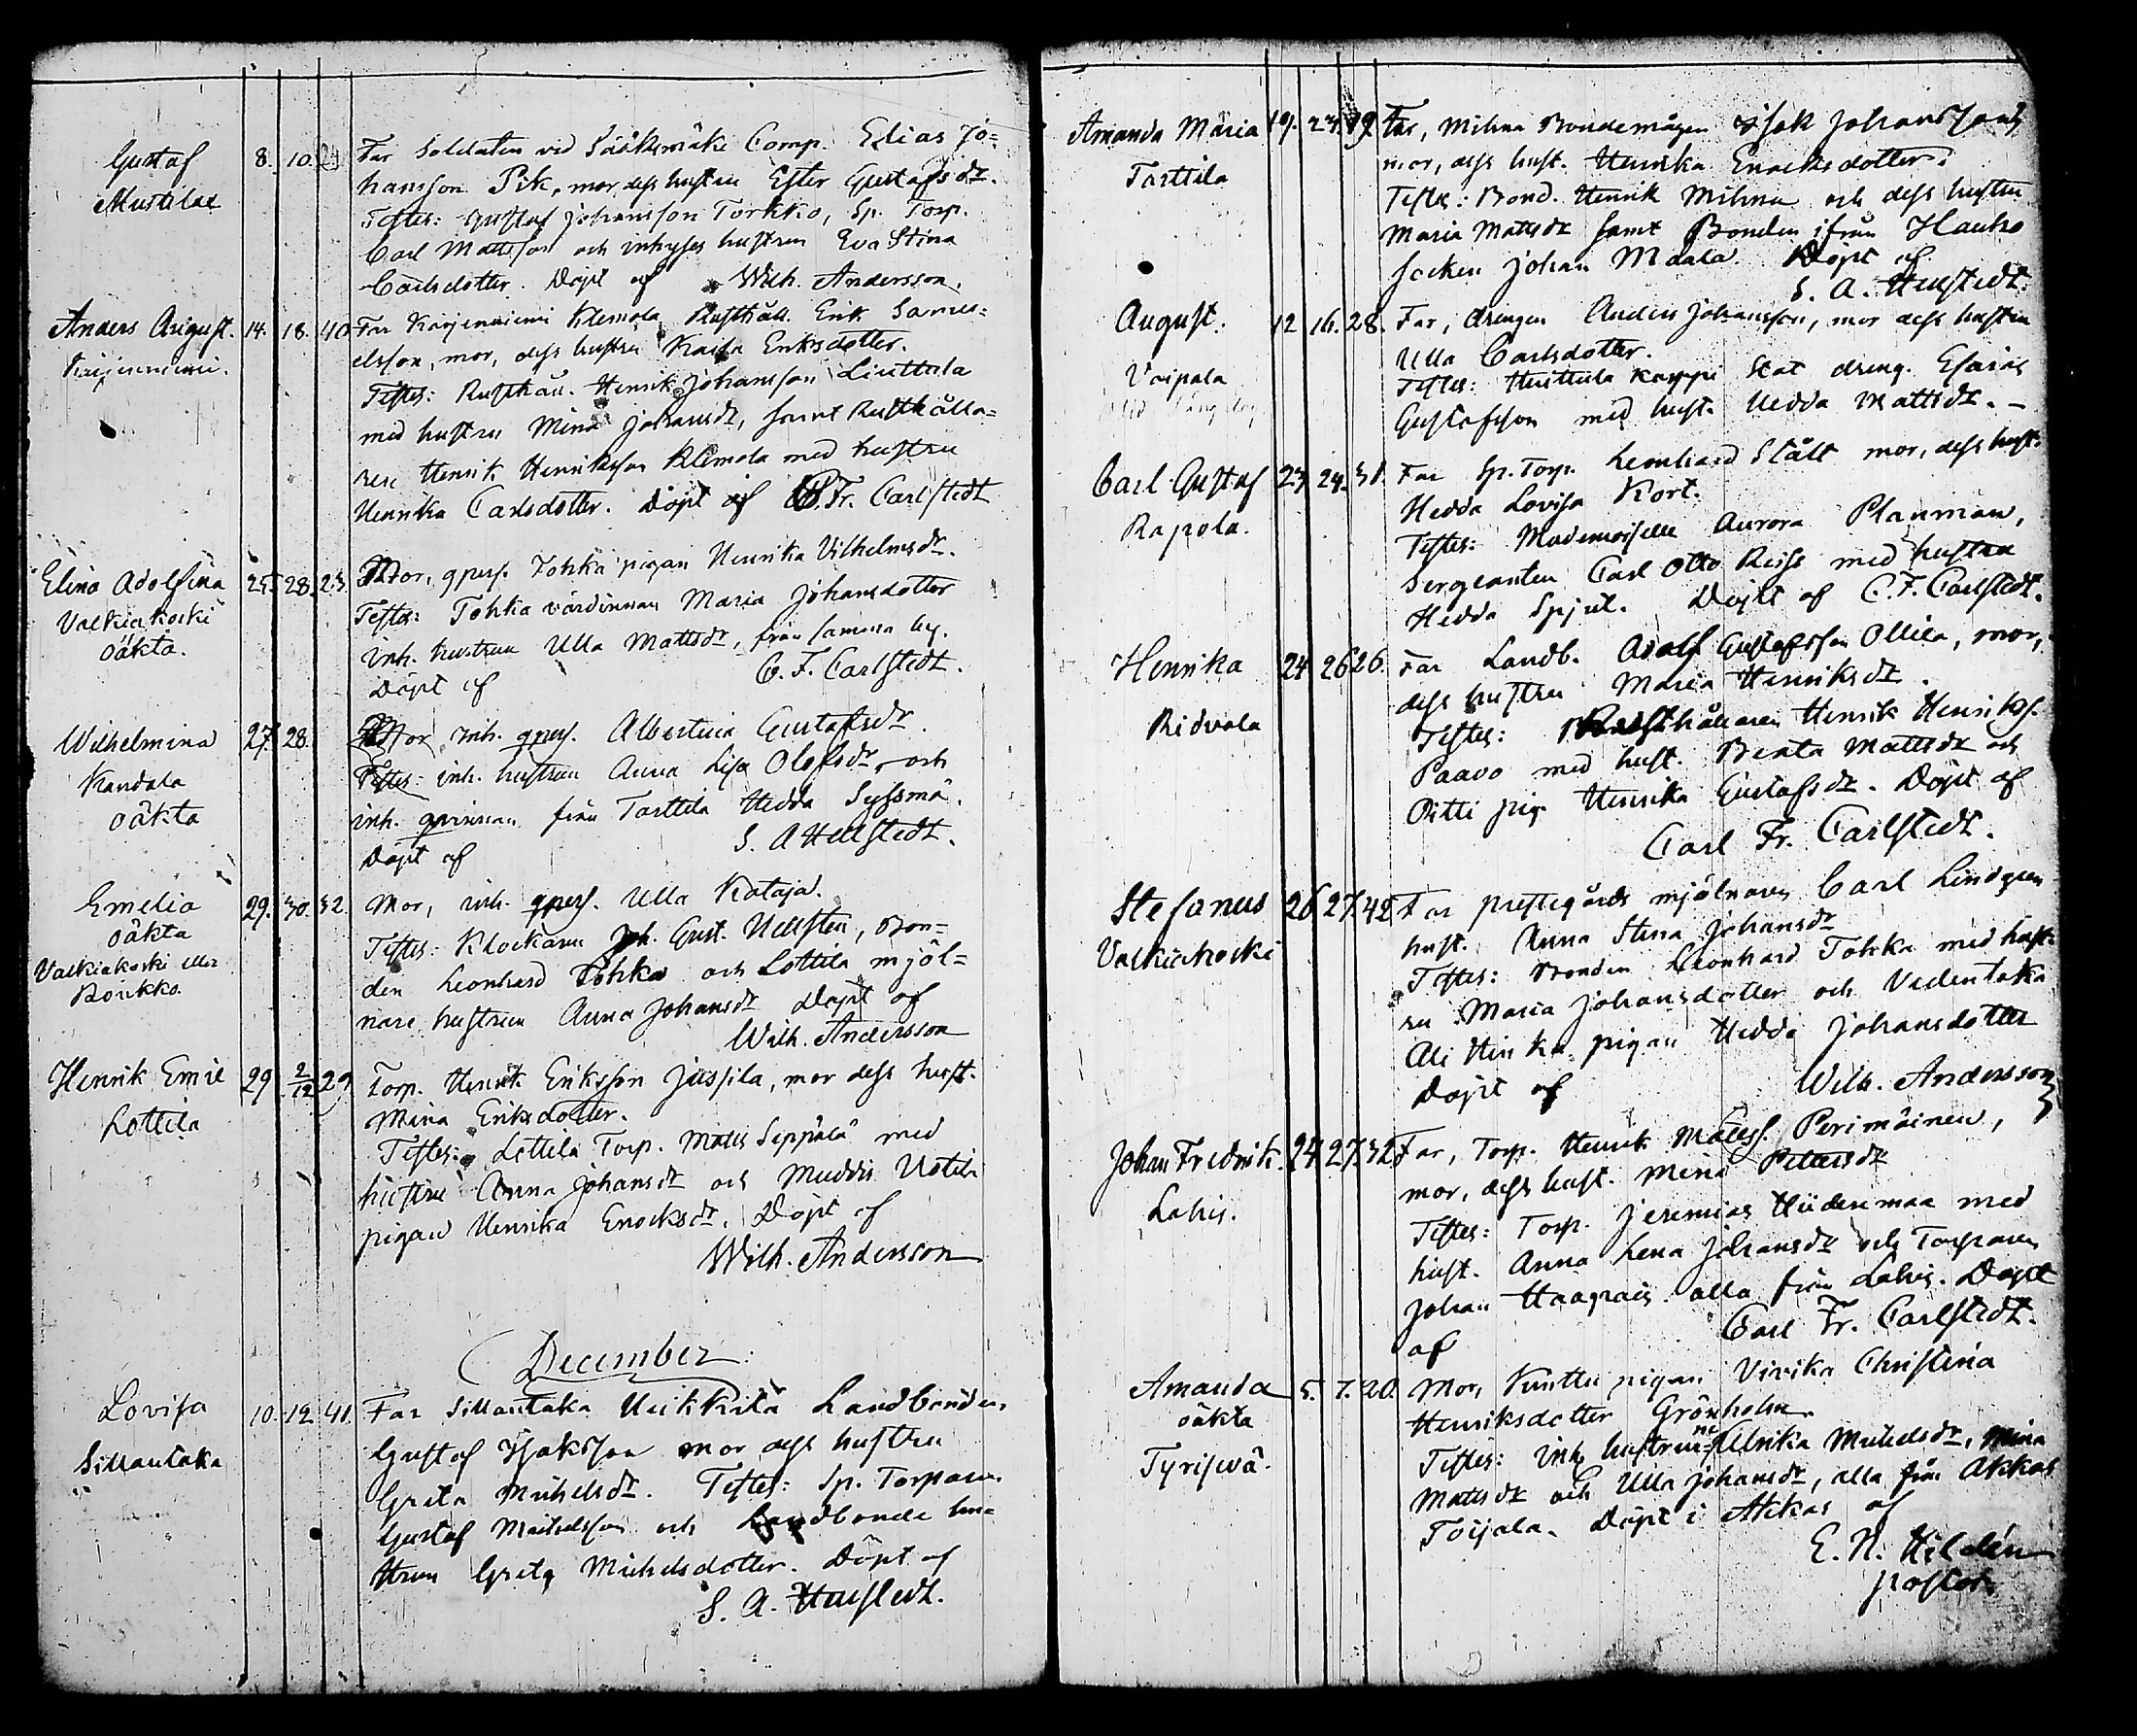 Gustaf 8. 10. 24. Far Soldaten vid Sääksmäki Comp. Elias Jo=
Mustila hansson Pik, mor dess hustru Ester Gustafsdr.
Testes: Gustaf Johansson Torkko, Sp. Torp.
Carl Mattsson och inhyses hustrun Eva Stina
Carlsdotter. Döpt af Wilh. Andersson.
Anders August. 14. 18. 40. Far Karjenniemi Klemola Rusthåll. Erik Samu=
Karjenniemi. elsson, mor, dess hustru Kaisa Eriksdotter.
Testes: Rusthåll. Henrik Johansson Liuttula
med hustru Mina Johansdr, samt Rusthålla=
ren Henrik Henriksson Klemola med hustru
Henrika Carlsdotter. Döpt af C. Fr. Carlstedt
Elina Adolfina 25. 28. 23. Mor, qpers. Tohka pigan Henrika Vilhelmsdr.
Valkiakoski Testes: Tohka värdinnan Maria Johansdotter
oäkta. inh. hustrun Ulla Mattsdr, från samma by.
Döpt af C. F. Carlstedt.
Wilhelmina 27. 28. Mor inh. qpers. Albertina Gustafsdr.
Kandala Testes: inh. hustrun Anna Lisa Olofsdr, och
oäkta inh. qvinnan från Tarttila Hedda Syssmä.
Döpt af S. A. Hellstedt.
Emelia 29. 30. 32. Mor, inh. qpers. Ulla Kataja.
oäkta Testes: Klockaren Joh. Gust. Hellsten, Bon=
Valkiakoski eller den Leonhard Tohka och Lottila mjöl=
Roukko. nare hustrun Anna Johansdr Döpt af
Wilh. Andersson
Henrik Emil 29 2/12 29. Torp. Henrik Eriksson Jussila, mor dess hust.
Lottila Mina Eriksdotter.
Testes: Lottila Torp. Matts Seppälä med
hustru Anna Johansdr och Muddis Uotila
pigan Henrika Enochsdr. Döpt af
Wilh. Andersson
December:
Lovisa 10. 12. 41. Far Sillantaka Heikkilä Landbonden
Sillantaka Gustaf Isaksson mor dess hustru
Greta Michelsdr. Testes: Sp. Torparen
Gustaf Michelsson och Landbonde hu=
strun Greta Michelsdotter. Döpt af
S. A. Hellstedt.
Amanda Maria 19. 23. 39. Far, Milma Bondemågen Isak Johansson,
Tarttila mor, dess hust. Henrika Enochsdotter.
Testes: Bond. Henrik Milma och dess hustru
Maria Mattsdr samt Bonden ifrån Hauho
socken Johan Maala. Döpt af
S. A. Hellstedt.
August. 12 16. 28. Far, drengen Anders Johansson, mor dess hustru
Voipala Ulla Carlsdotter.
Testes: Huittula Kappi Stat dreng. Esaias
Gustafsson med hust. Hedda Mattsdr. –
Carl Gustaf 23 24. 31. Far Sp. Torp. Leonhard Stålt mor, dess hust.
Rapola. Hedda Lovisa Kort.
Testes: Mademoiselle Aurora Planman,
Sergeanten Carl Otto Reiss med hustru
Hedda Spjut. Döpt af C. F. Carlstedt.
Henrika 24 26 26. Far Landb. Adolf Gustafsson Ollila, mor,
Ridvala dess hustru Maria Henriksdr.
Testes: Rusthållaren Henrik Henrikss.
Paavo med hust. Beata Mattsdr och
Pitti pig. Henrika Gustafsdr. Döpt af
Carl Fr. Carlstedt.
Stefanus 26 27. 42. Far prestegårds mjölnaren Carl Lindgren
Valkiakoski hust. Anna Stina Johansdr
Testes: Bonden Leonhard Tohka med hust=
ru Maria Johansdotter och Vedentaka
Ali Hinkka pigan Hedda Johansdotter
Döpt af Wilh. Andersson
Johan Fredrik. 24 27. 32. Far, Torp. Henrik Matss. Perimäinen,
Lahis. mor, dess hust. Mina Pettersdr
Testes: Torp. Jeremias Hiidenmaa med
hust. Anna Lena Johansdr och Torparen
Johan Haaprais alla från Lahis. Döpt
af Carl Fr. Carlstedt.
Amanda 5. 7. 20. Mor, Kunttu pigan Vivika Christina
oäkta Henriksdotter Grönholm.
Tyrisevä. Testes: inh. hustrurne Ulrika Michelsdr, Mina
Mattsdr och Ulla Johansdr, alla från Akkas
Toijala. Döpt i Akkas af
E. N. Hildén
pastor.